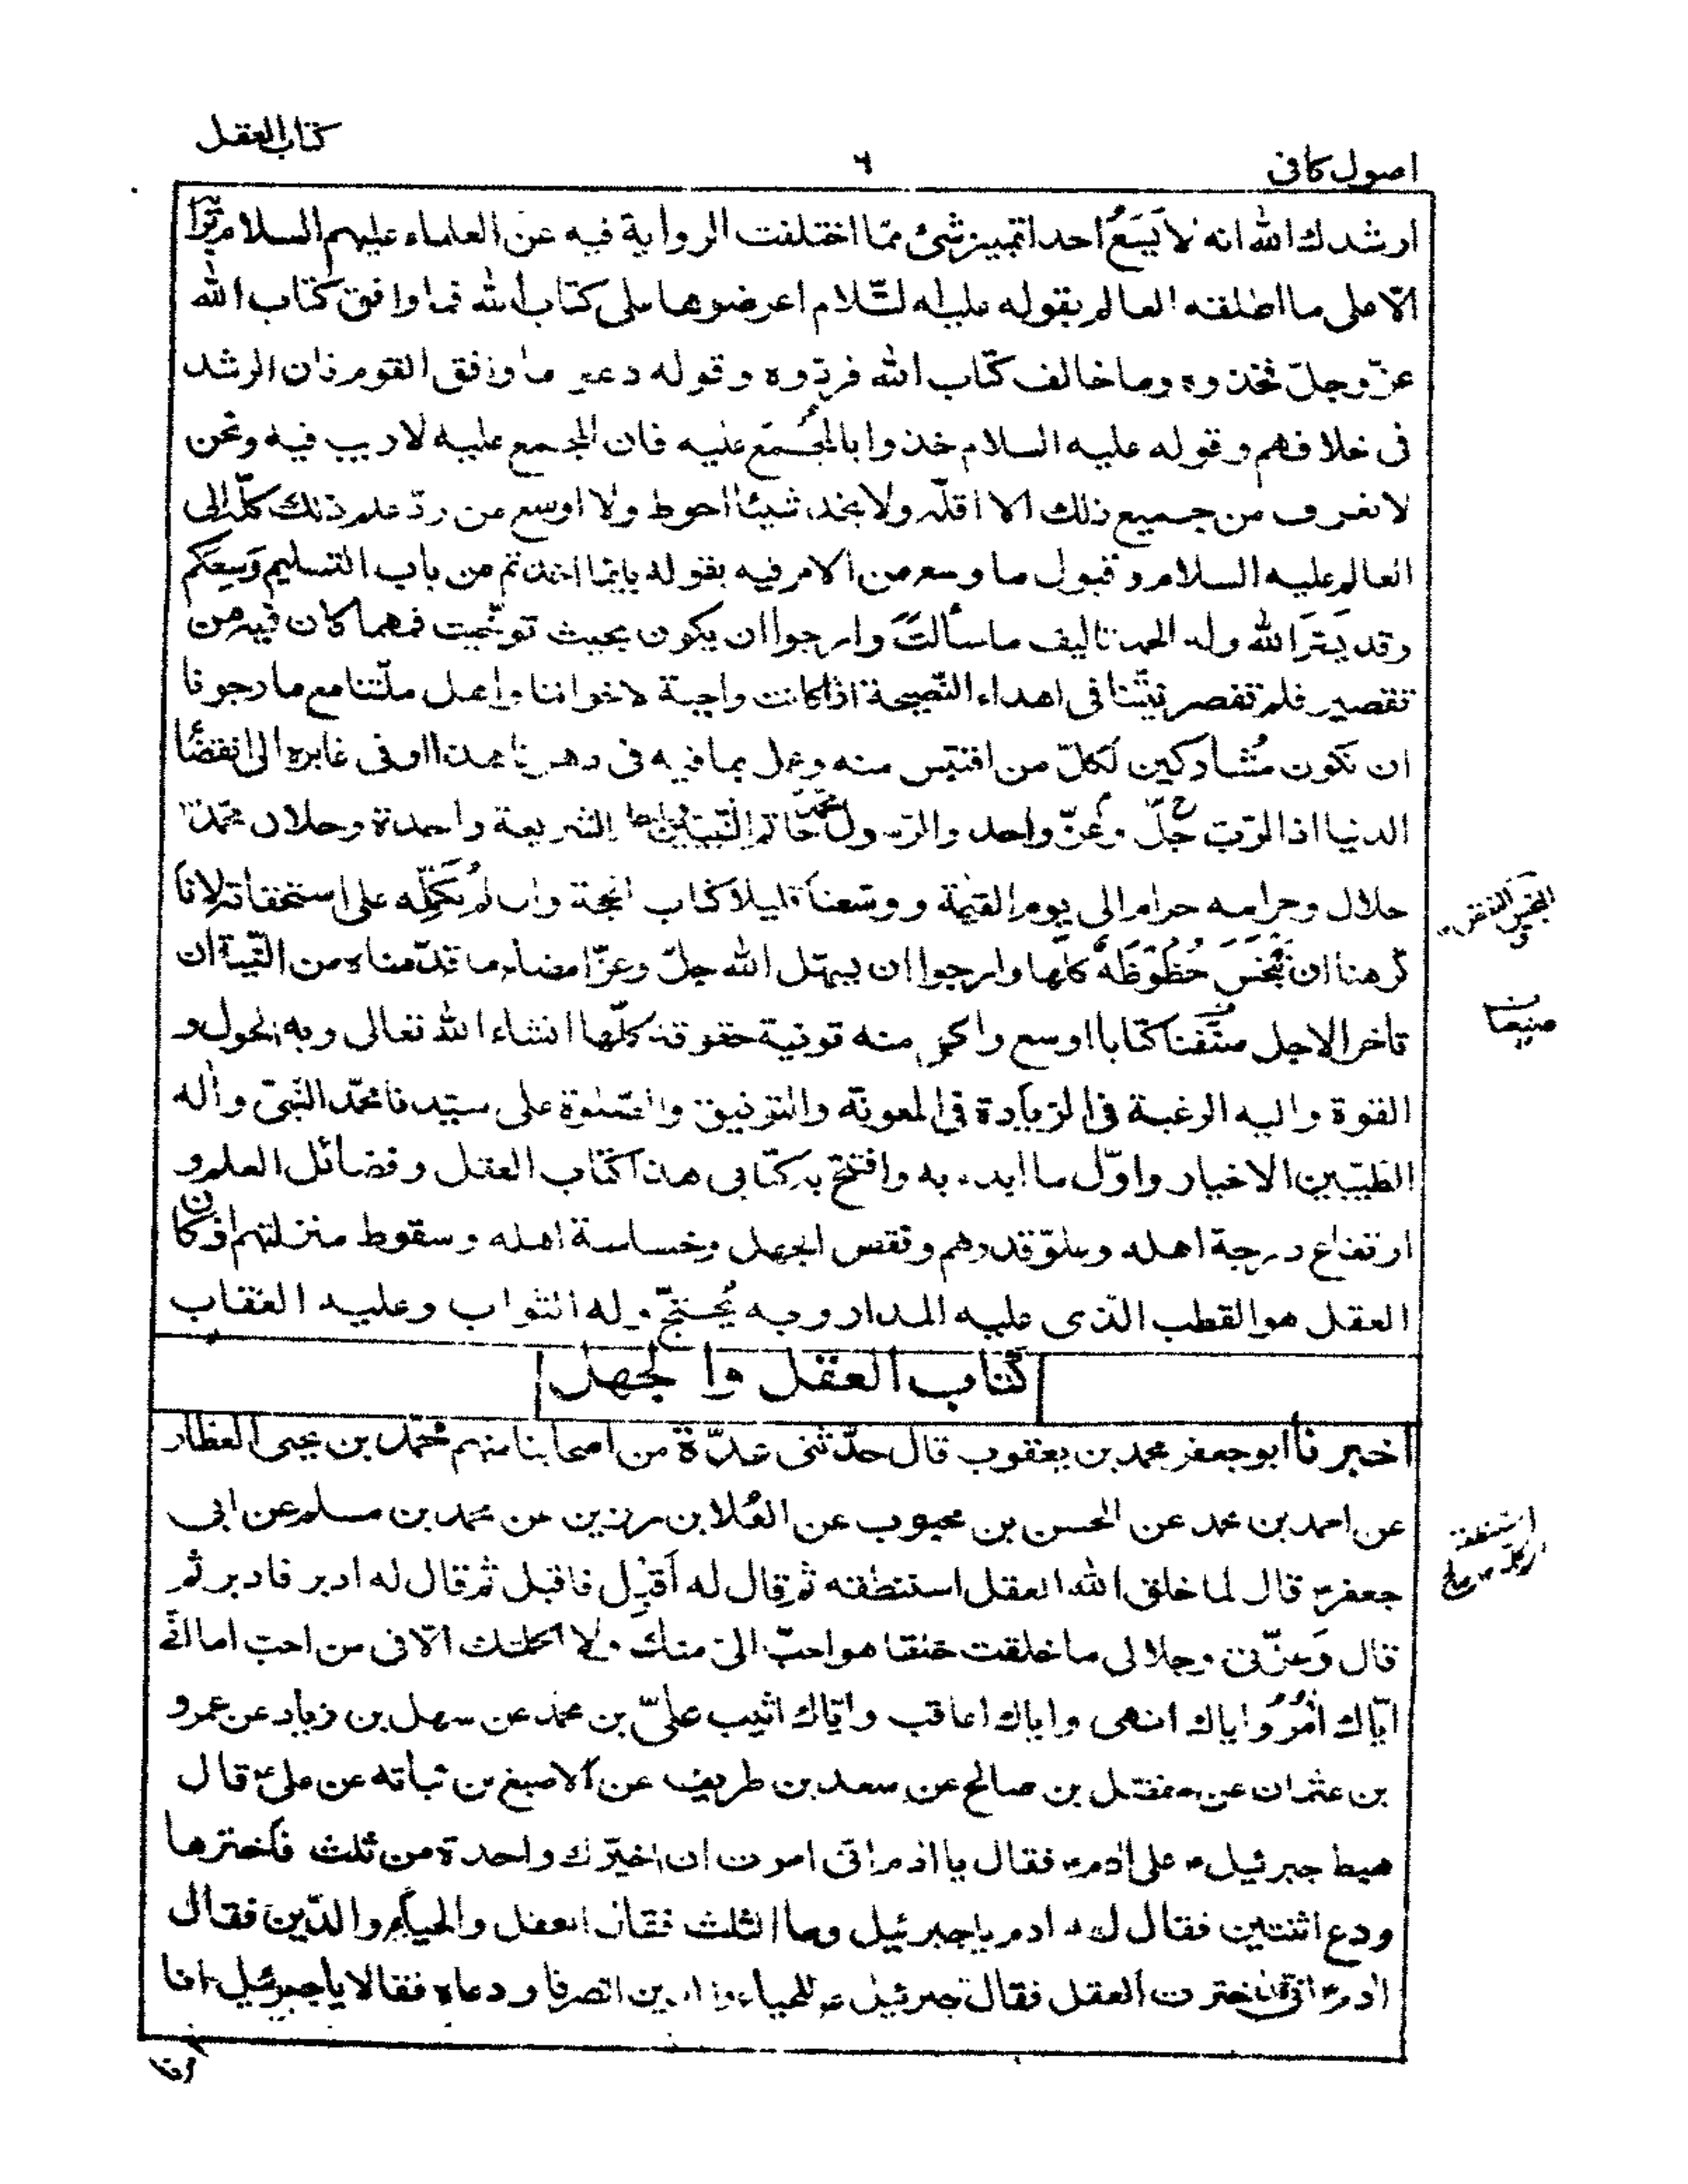 كتاب العقل
٦
اصول كافى
ارشدك الله انه لا يَسَعُ احدا تمييز شئ ممّا اختلفت الرواية فيه عن العلماء عليهم السلام برأيه
الّا على ما اطلقه العالم بقوله عليه السّلام اعرضوها على كتاب الله فما وافق كتاب الله
عزّ وجلّ فخذوه وما خالف كتاب الله فردّوه وقوله دعوا ما وافق القوم فان الرشد
فى خلافهم وقوله عليه السلام خذوا بالمُجمَع عليه فان المجمع عليه لا ريب فيه ونحن
لا نعرف من جميع ذلك الا اقلّه ولا نجد شيئا احوط ولا اوسع من ردّ علم ذلك كلّه الى
العالم عليه السلام وقبول ما وسع من الامر فيه بقوله بايّما اخذتم من باب التسليم وَسِعَكم
وقد يَسَّرَ الله وله الحمد تاليف ما سألتَ وارجوا ان يكون بحيث توخّيت فمهما كان فيه من
تقصير فلم تقصر نيّتنا فى اهداء النّصيحة اذ كانت واجبة لاخواننا واهل ملّتنا مع ما رجونا
ان نكون مُشاركين لكلّ من اقتبس منه وعمل بما فيه فى دهرنا هذا او فى غابره الى انقضاء
الدنيا اذ الربّ جلّ وعزّ واحد والرّسول محمّد خاتم النّبيّين واحد الشريعة واحدة وحلال محمّد
حلال وحرامه حرام الى يوم القيمة ووسّعنا قليلا كتاب الحجة وان لم نُكَمِّله على استحقاقه لانا
كرهنا ان نَبْخَسَ حُظُوظَهُ كلّها وارجوا ان يسهل الله جلّ وعزّ امضاء ما قدّمناه من النّيّة ان
تأخر الاجل صنّفنا كتابا اوسع واكمل منه توفية حقوقه كلّها انشاء الله تعالى وبه الحول و
القوة واليه الرغبة فى الزيادة فى المعونة والتوفيق والصّلوة على سيّدنا محمّد النّبىّ وآله
الطّيّبين الاخيار واوّل ما ابدء به وافتتح به كتابى هذا كتاب العقل وفضائل العلم و
ارتفاع درجة اهله وعلوّ قدرهم ونقص الجهل وخساسة اهله وسقوط منزلتهم اذ كان
العقل هو القطب الّذى عليه المدار وبه يُحتجّ وله الثواب وعليه العقاب
كتاب العقل والجهل
اخبرنا ابو جعفر محمد بن يعقوب قال حدّثنى عدّة من اصحابنا منهم محمّد بن يحيى العطار
عن احمد بن محمد عن الحسن بن محبوب عن العُلا بن رزين عن محمد بن مسلم عن ابى
جعفرؑ قال لما خلق الله العقل استنطقه ثم قال له اَقبِل فاقبل ثم قال له ادبر فادبر ثم
قال وَعزّتى وجلالى ما خلقت خلقا هو احبّ الىّ منك ولا اكملتك الّا فى من احبّ اما انّى
ايّاك آمُرُ واياك انهى واياك اعاقب وايّاك اثيب علىّ بن محمد عن سهل بن زياد عن عمرو
بن عثمان عن مفضّل بن صالح عن سعد بن طريف عن الاصبغ بن نباته عن علىؑ قال
هبط جبرئيلؑ على آدمؑ فقال يا آدم انّى امرت ان اخيّرك واحدة من ثلث فاخترها
ودع اثنتين فقال له آدم يا جبرئيل وما الثلث فقال العقل والحياء والدّين فقال
آدمؑ انّى قد اخترت العقل فقال جبرئيلؑ للحياء والدين انصرفا ودعاه فقالا يا جبرئيل انا
امرنا